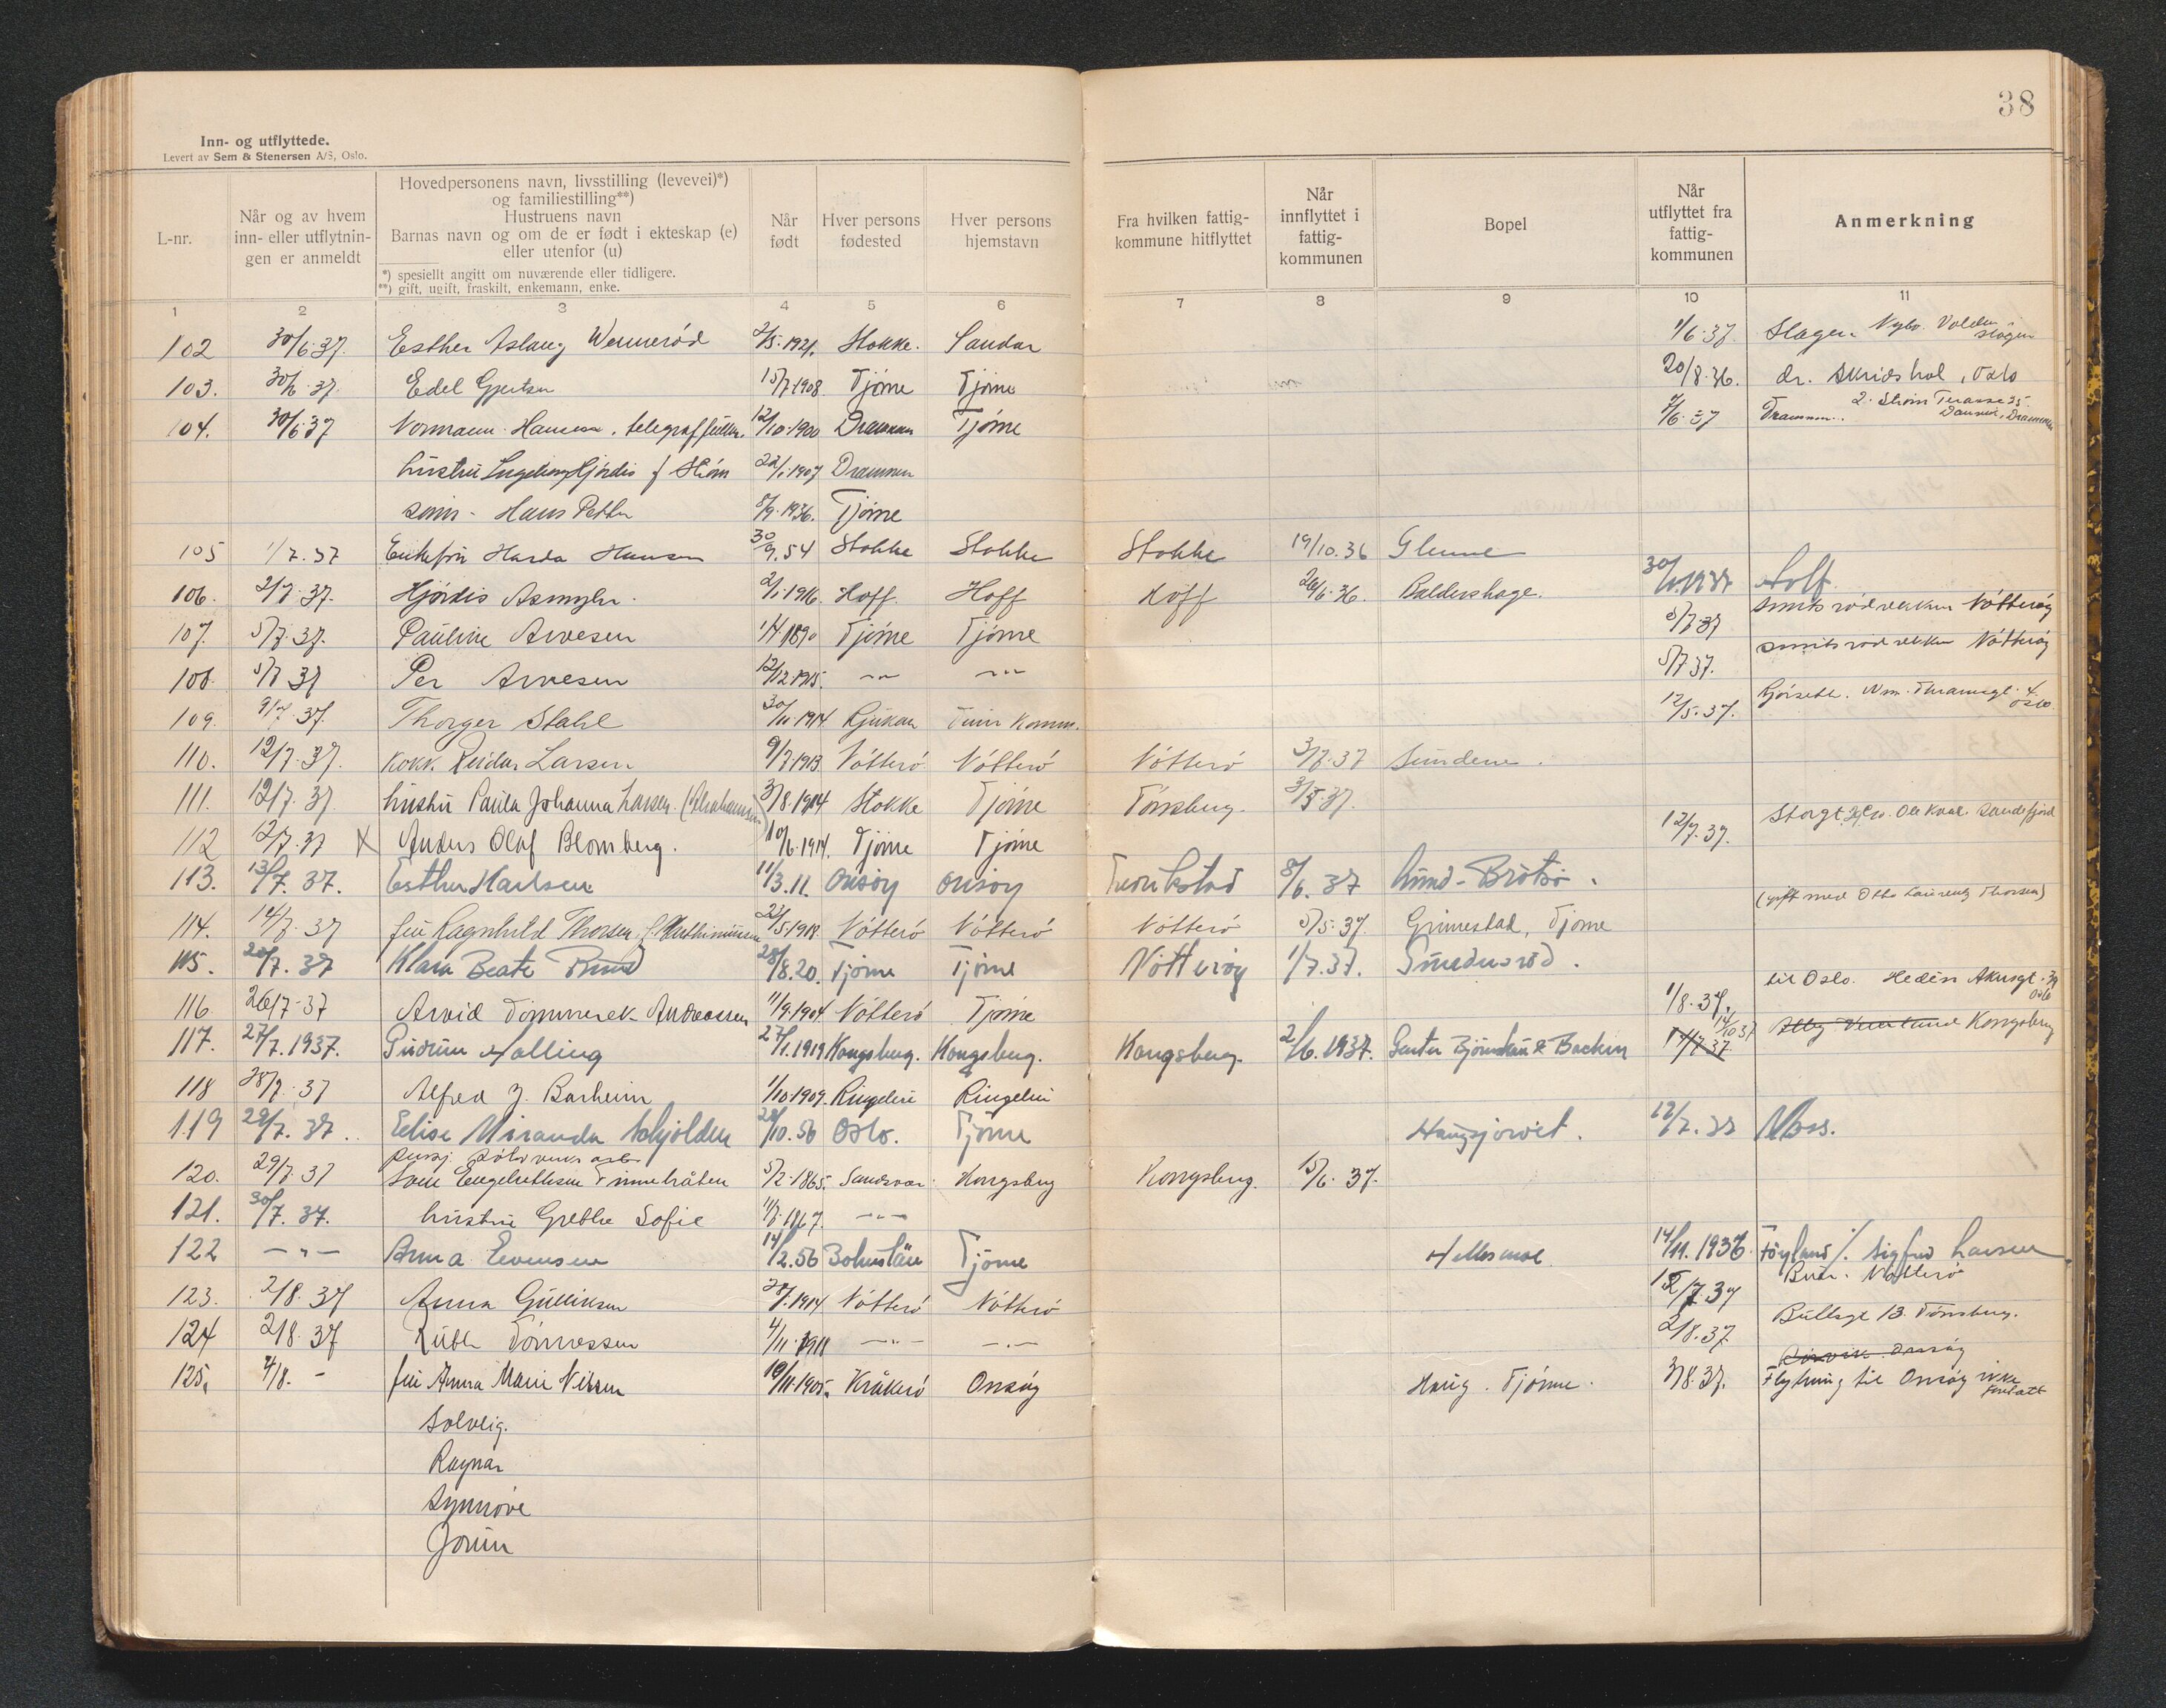 38
Inn- og utflyttede.
Levert av Sem & Stenersen A/S, Oslo.
L-nr.
Når og av hvem inn- eller utflytnin- gen er anmeldt
Hovedpersonens navn, livsstilling (levevei)*)
og familiestilling**)
Hustruens navn
Barnas navn og om de er født i ekteskap (e)
eller utenfor (u)
*) spesielt angitt om nuværende eller tidligere.
**) gift, ugift, fraskilt, enkemann, enke.
Når født
Hver persons fødested
Hver persons hjemstavn
Fra hvilken fattig- kommune hitflyttet
Når innflyttet i fattig- kommunen
Bopel
Når utflyttet fra fattig- kommunen
Anmerkning
1 2 3 4 5 6 7 8 9 10 11
102 30/6.37. Esther Aslaug Wennerød 2/5.1921. Stokke. Sandar 1/6.37. Slagen
103. 30/6.37. Edel Gjertsen 15/7.1908 Tjøme Tjøme 20/8.36. Oslo
104. 30/6.37 Normann Hansen. 12/10.1900 Drammen Tjøme Drammen.
hustru Ingeborg Hjørdis f Strøm 22/1.1907 Drammen
sønn - Hans Petter 8/9.1936. Tjøme
105 1/7.37 Enkefru Hansen 30/9.54 Stokke Stokke Stokke 19/10.36 Glenne
106. 2/7.37. Hjørdis 2/1.1916. Hoff Hoff Hoff 20/6.36. Baldershage.
107. 5/7.37. Pauline Arvesen 1/4.1890 Tjøme Tjøme 5/7 37 Smidsrødveien Nøtterøy
108. 5/7 37 Per Arvesen 12/12.1915. -"- -"- 5/7 37. Smidsrødveien Nøtterøy
109. 9/7 37. Thorger Stahl 30/11.1914 Rjukan Tinn Komm. 12/5.37. Oslo
110. 12/7.37. Kokk Reidar Larsen 9/7.1913 Nøtterø Nøtterø Nøtterø 3/7.37 Sundene.
111. 12/7.37 hustru Paula Johanna Larsen. (f. Abrahamsen) 3/8.1914 Stokke Tjøme Tønsberg.
112 12/7.37 X Anders Olaf Blomberg. 10/6.1914. Tjøme Tjøme 12/7.37. Sandefjord
113. 13/7.37. Esther Karlsen 11/3.11. Onsøy Onsøy Fredrikstad 8/6.37 Lund - Brøtsø.
114. 14/7.37 fru Ragnhild Thorsen 23/5.1918 Nøtterø Nøtterø Nøtterø 5/5.37. Grimestad, Tjøme (gift med Otto Laurentz Thorsen)
115. 20/7.37 Klara Beate Rund 28/8.20. Tjøme Tjøme Nøtterøy 1/7.37.
116. 26/7-37 Arvid Tømmerek Andreassen 11/9.1904 Nøtterø Tjøme 1/8.37. til Oslo. Oslo
117. 27/7.1937. Gudrun Holling 27/1.1919 Kongsberg. Kongsberg. Kongsberg. 2/6.1937. 14/10 37 Kongsberg
118 28/7.37 Alfred J. Barheim 1/10.1909. Ringebu Ringebu
119 29/7.37. Elise Miranda Schjolden 28/10.56 Oslo. Tjøme Haugsjordet. 12/7.37 Moss.
120. 29/7 37 Engelbrethsen 5/2.1865. Sandsvær Kongsberg Kongsberg. 15/6.37.
121. 30/7.37. hustru Grethe Sofie -"-
122 -"- Anna Evensen 14/2.56 Bohuslän Tjøme Hellesmoe 14/11.1936 Føynland %. Sigfred Larsen
123. 2/8.37 Anna Gulliksen Nøtterø Nøtterø Nøtterø
124 2/8.37 Tønnessen 4/11.1911 -"- -"- 2/8.37. Bullsgt 13. Tønsberg.
125. 4/8. - fru Anna Marie Nilsen 19/11.1905. Kråkerø Onsøy Haug. Tjøme. 3/8.37. Flytning til Onsøy ikke foretatt
Solveig.
Ragnar
Synnøve
Jorun